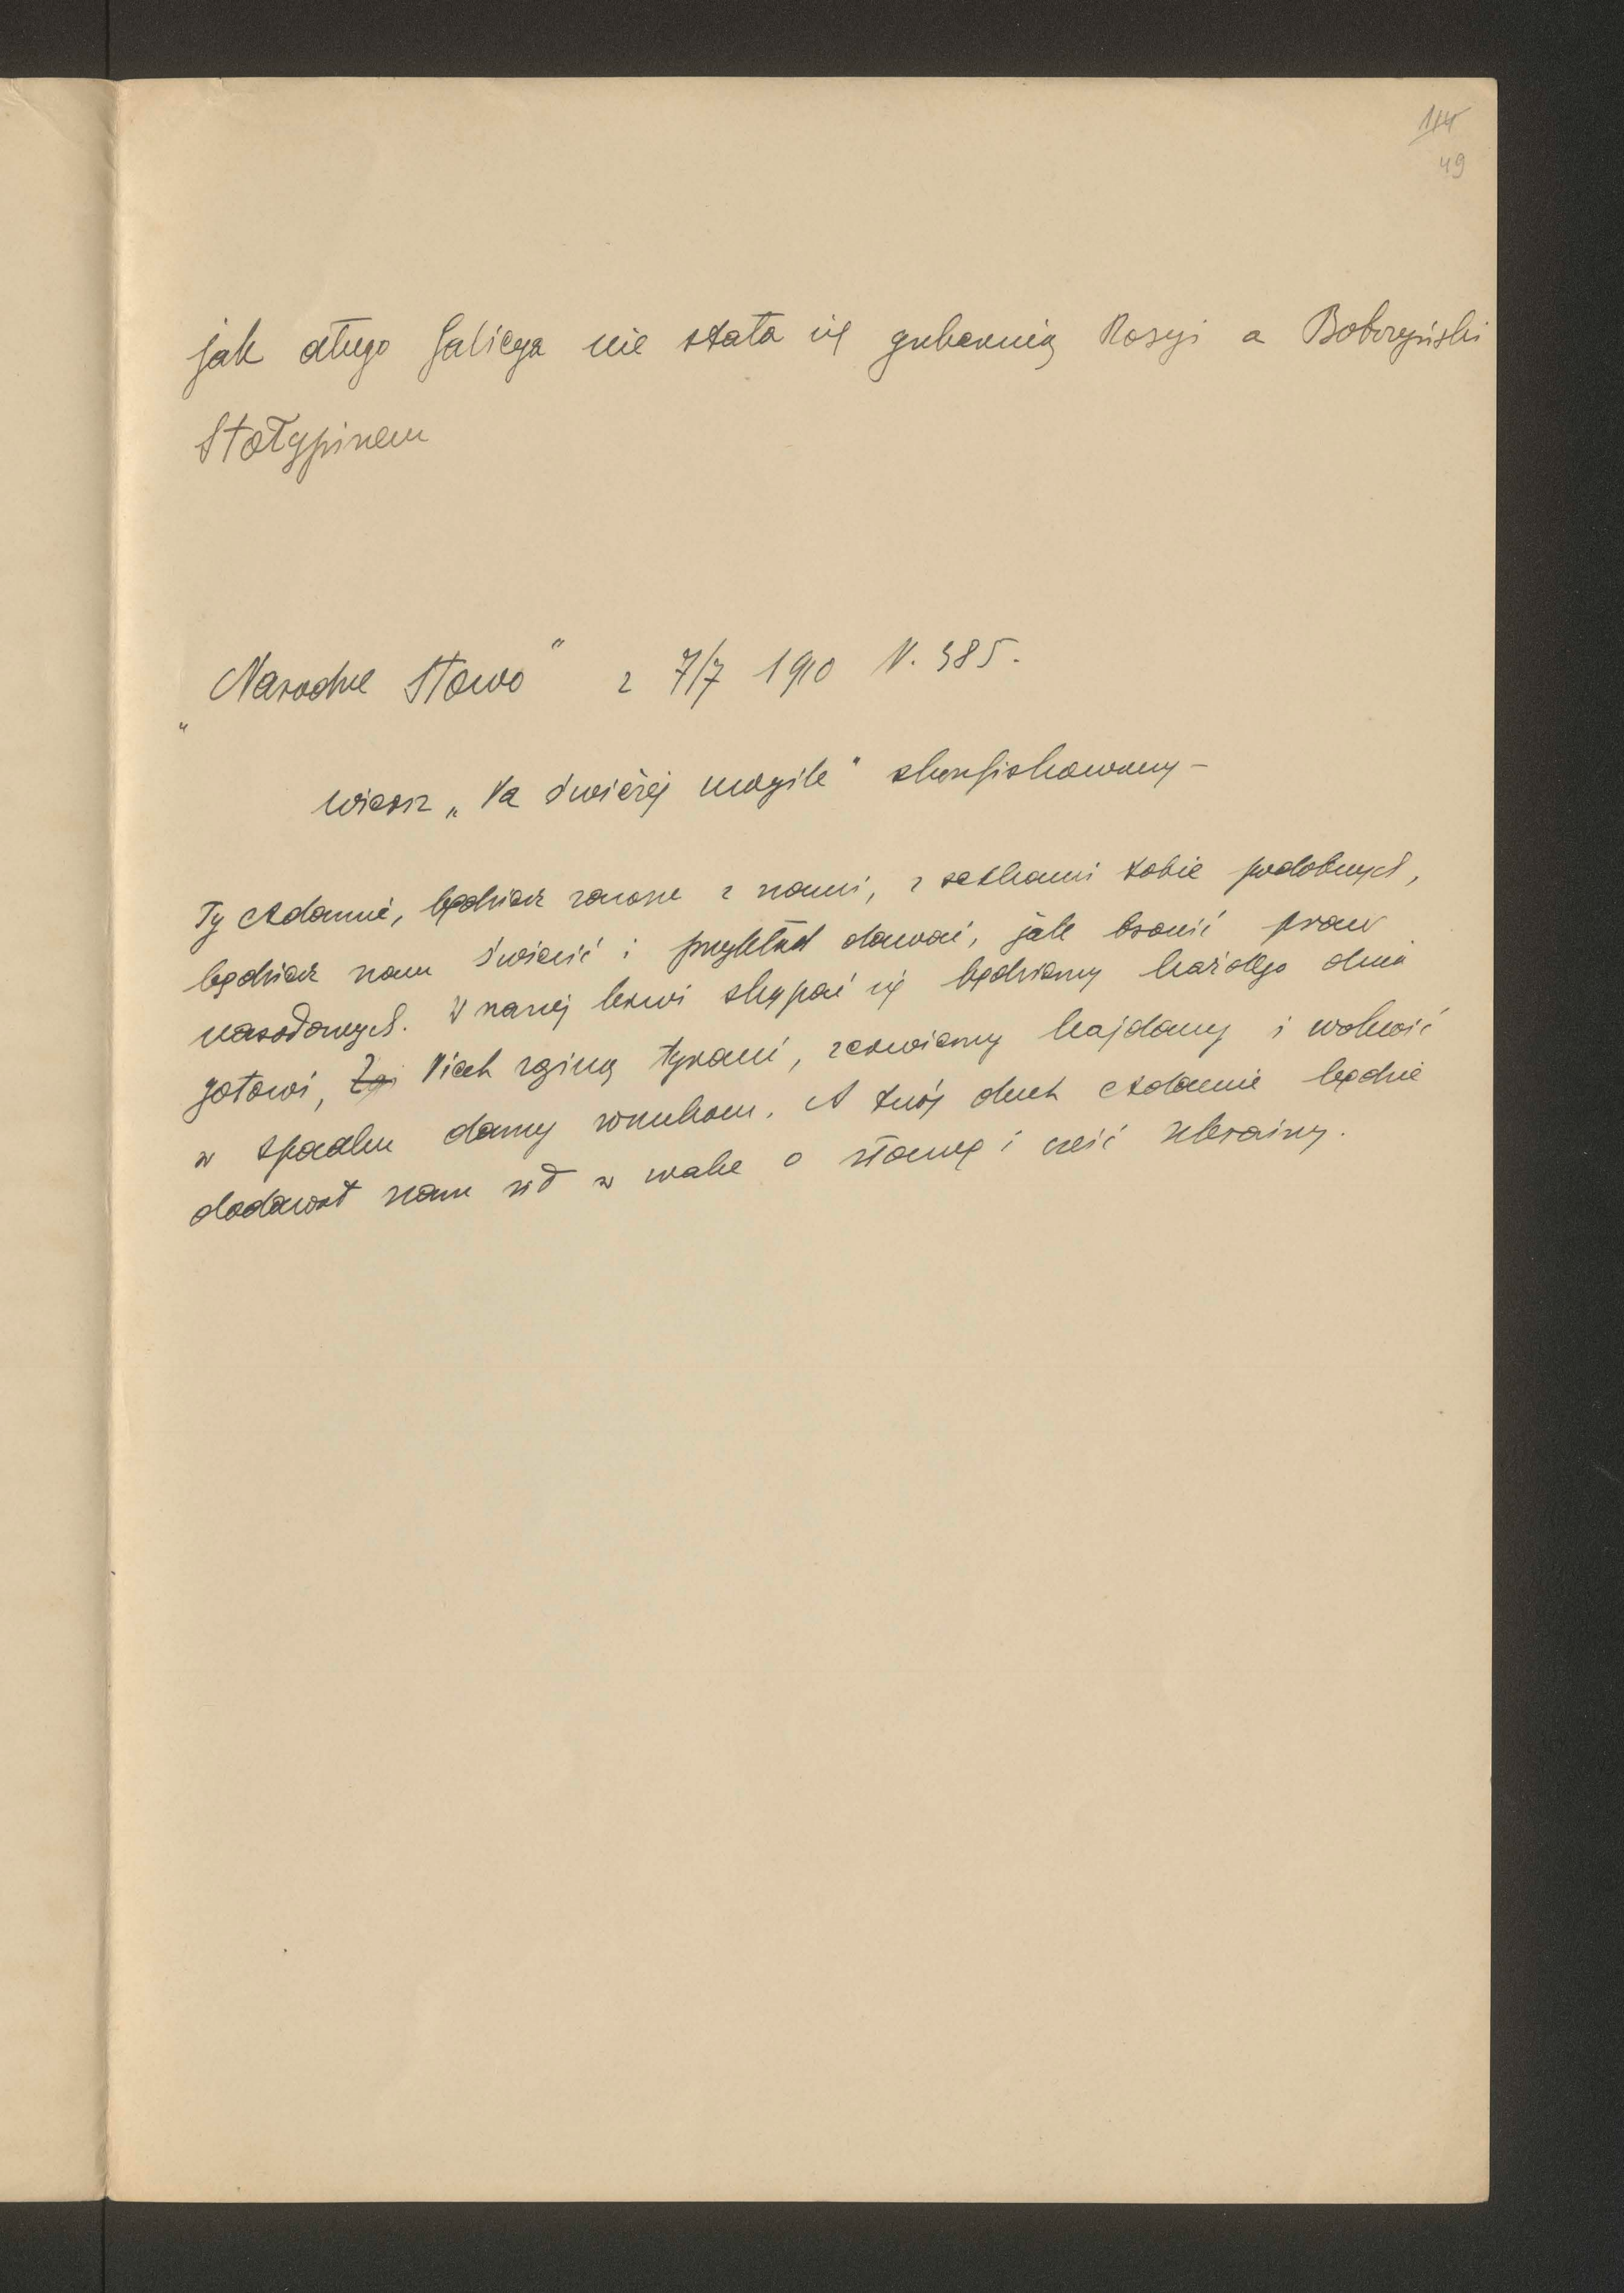 114
49
jak długo Galicya nie stała się gubernią Rosyi a Bobrzyński
Stołypinem
„Narodne Słowo" z 7/7 1910 N. 385.
wiersz „Na świeżej mogile" skonfiskowany –
Ty Adamie, będziesz zawsze z nami, z setkami tobie podobnych,
będziesz nam świecić i przykład dawać, jak bronić praw
narodowych. W naszej krwi skąpać się będziemy każdego dnia
gotowi, Niech zginą tyrani, zerwiemy kajdany i wolność
w spadku damy wnukom. A twój duch Adamie będzie
dodawał nam sił w walce o sławę i cześć Ukrainy.